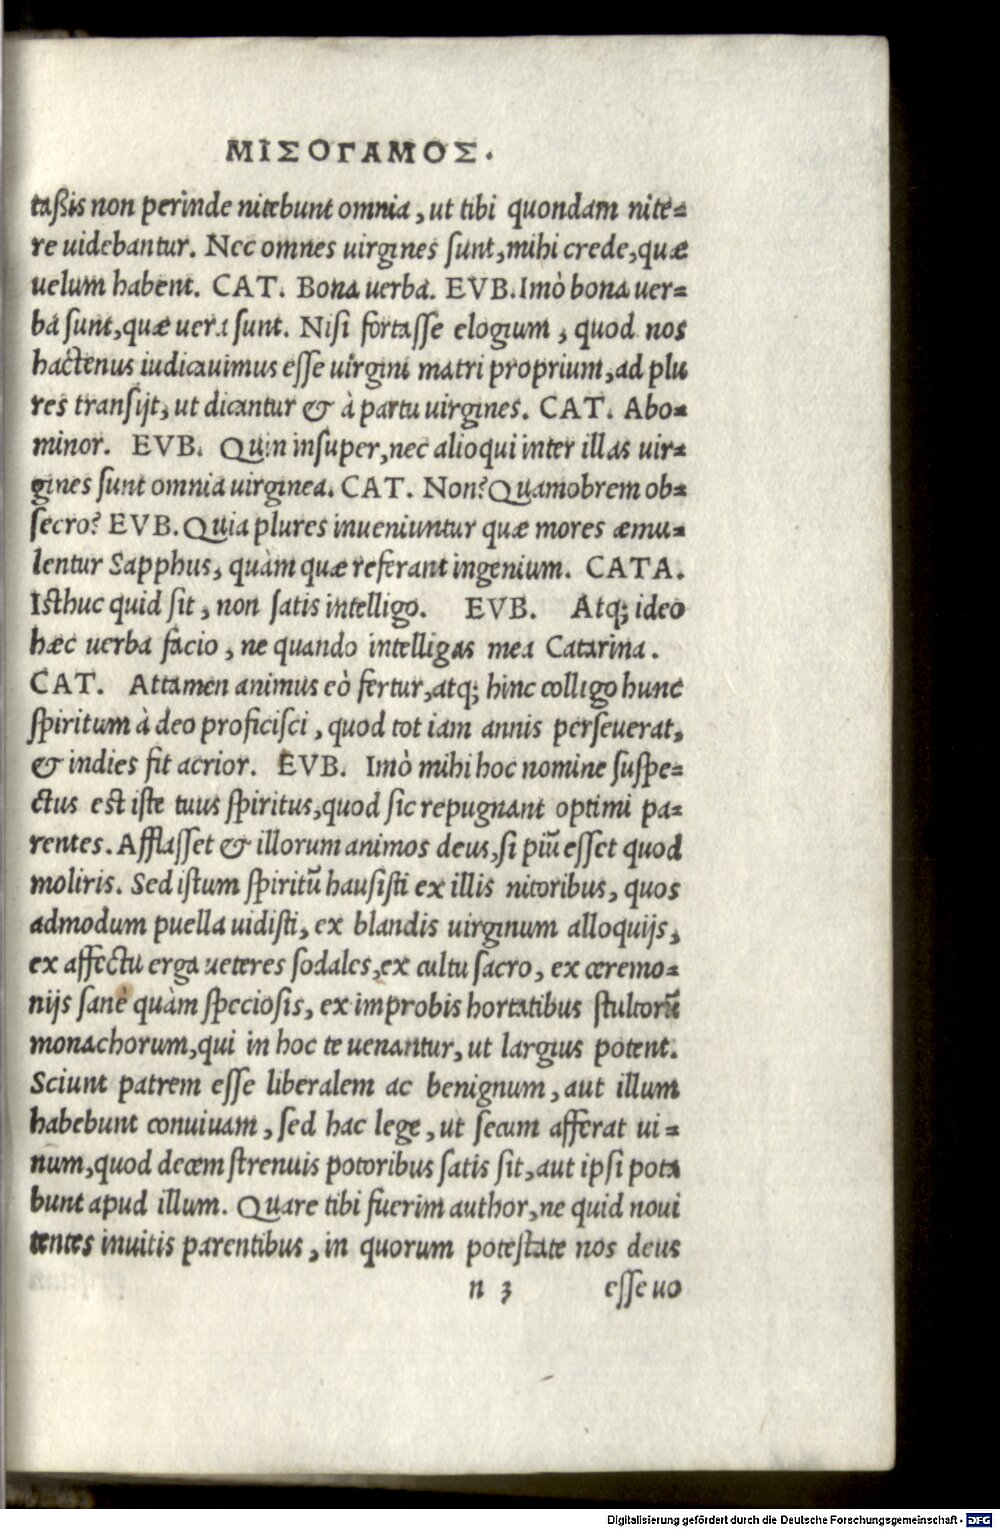 ΜΙΣΟΓΑΜΟΣ.
taßis non perinde nitebunt omnia, ut tibi quondam nite=
re uidebantur. Nec omnes uirgines sunt, mihi crede, quæ
uelum habent. CAT. Bona uerba. EVB. Imò bona uer=
ba sunt, quæ uera sunt. Nisi fortasse elogium, quod nos
hactenus iudicauimus esse uirgini matri proprium, ad plu
res transijt, ut dicantur & à partu uirgines. CAT. Abo=
minor. EVB. Quin insuper, nec alioqui inter illas uir=
gines sunt omnia uirginea. CAT. Non? Quamobrem ob=
secro? EVB. Quia plures inueniuntur quæ mores æmu=
lentur Sapphus, quàm quæ referant ingenium. CATA.
Isthuc quid sit, non satis intelligo. EVB. Atq; ideo
hæc uerba facio, ne quando intelligas mea Catarina.
CAT. Attamen animus eò fertur, atq; hinc colligo hunc
spiritum à deo proficisci, quod tot iam annis perseuerat,
& indies fit acrior. EVB. Imò mihi hoc nomine suspe=
ctus est iste tuus spiritus, quod sic repugnant optimi pa=
rentes. Afflasset & illorum animos deus, si piū esset quod
moliris. Sed istum spiritū hausisti ex illis nitoribus, quos
admodum puella uidisti, ex blandis uirginum alloquijs,
ex affectu erga ueteres sodales, ex cultu sacro, ex ceremo=
nijs sanè quàm speciosis, ex improbis hortatibus stultorū
monachorum, qui in hoc te uenantur, ut largius potent.
Sciunt patrem esse liberalem ac benignum, aut illum
habebunt conuiuam, sed hac lege, ut secum afferat ui=
num, quod decem strenuis potoribus satis sit, aut ipsi pota
bunt apud illum. Quare tibi fuerim author, ne quid noui
tentes inuitis parentibus, in quorum potestate nos deus
n 3 esse uo
Digitalisierung gefördert durch die Deutsche Forschungsgemeinschaft - DFG